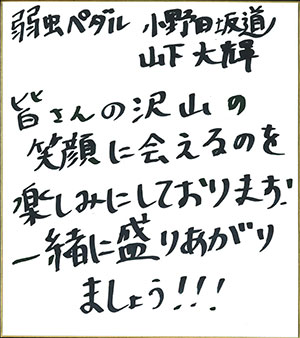 弱虫ペダル 小野田坂道
山下大輝
皆さんの沢山の
笑顔に会えるのを
楽しみにしております!
一緒に盛りあがり
ましょう!!!